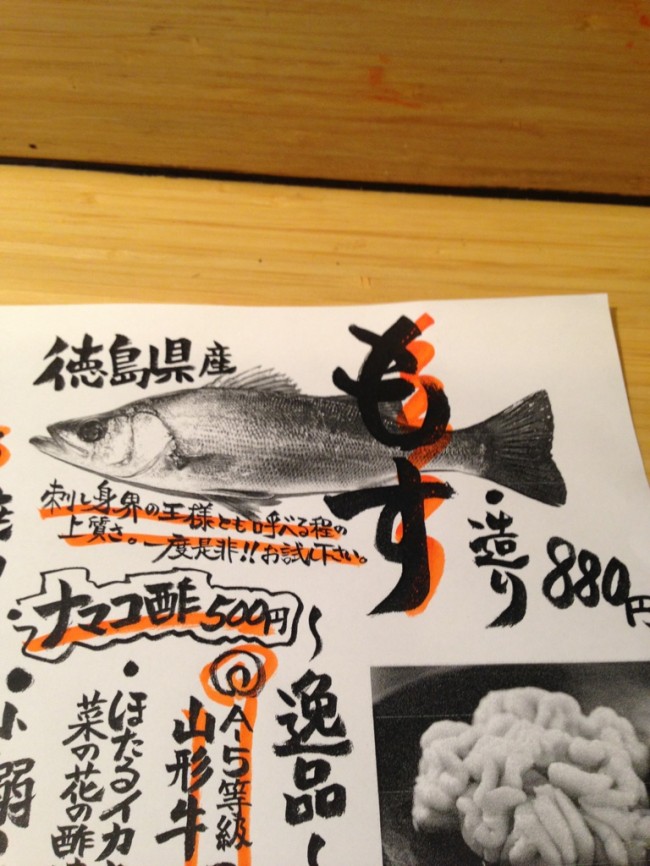 徳島県産
もす
刺し身界の王様とも呼べる程の
上質さ。一度是非!!お試し下さい。
・造り 880円
ナマコ酢 500円
~逸品~
A5等級
山形牛
・ほたるイカ
菜の花の酢